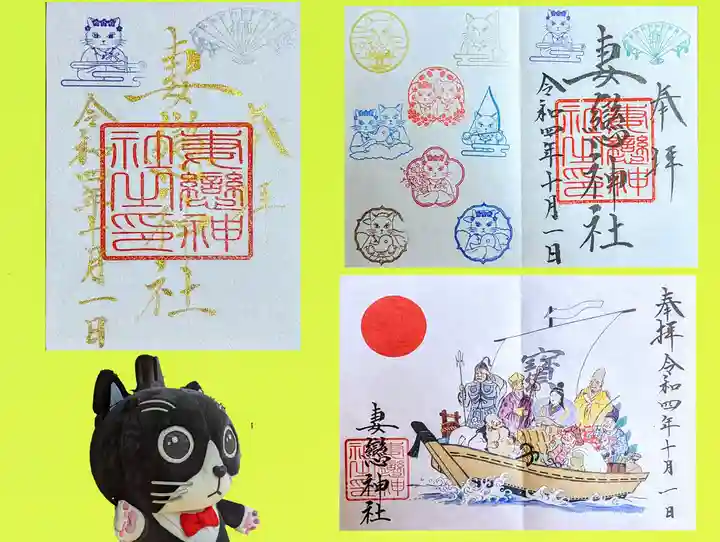 奉拝
妻戀神社
令和四年十月一日
妻戀神
社之印
奉拝
妻戀神社
令和四年十月一日
妻戀神
社之印
奉拝 令和四年十月一日
寶
妻戀神社
妻戀神
社之印